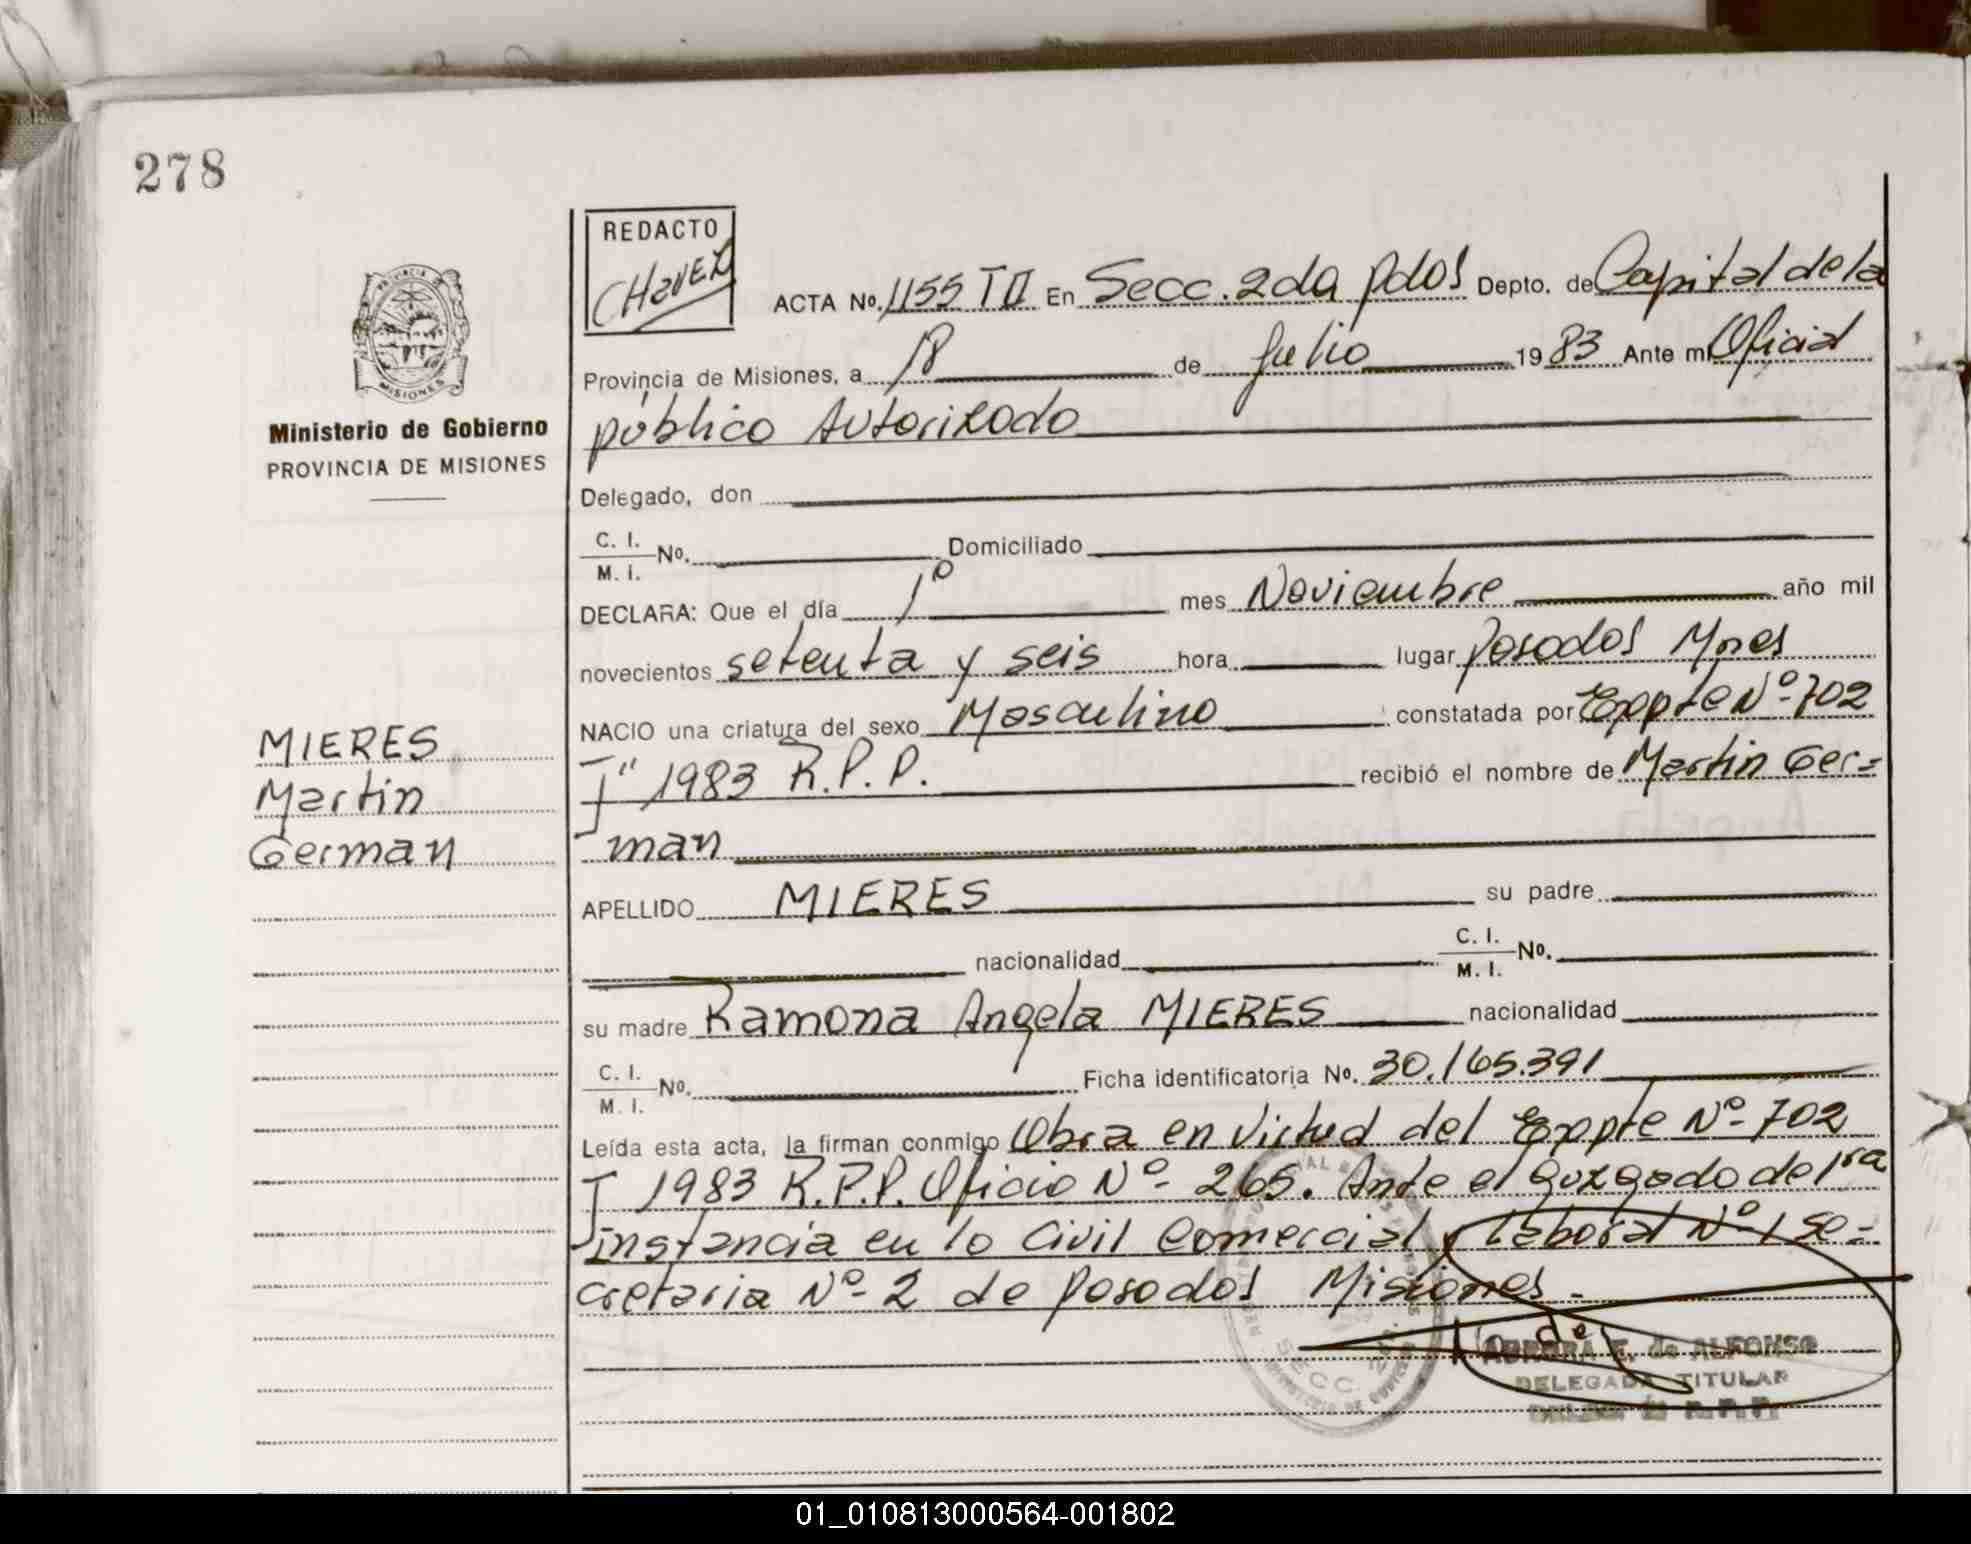 278
REDACTO
CHAVEZ
PROVINCIA DE
MISIONES
Ministerio de Gobierno
PROVINCIA DE MISIONES
ACTA No. 1155 TII En Secc. 2da pdas Depto. de Capital de la
Provincia de Misiones, a 18 de Julio 1983 Ante mi Oficial
público Autorizado
Delegado, don
C. I.
M. I. No. Domiciliado
DECLARA: Que el día 1º mes Noviembre año mil
novecientos setenta y seis hora lugar Posadas Mnes
NACIO una criatura del sexo Masculino constatada por Exppte Nº 702
J" 1983 R.P.P. recibió el nombre de Martin Ger=
man
APELLIDO MIERES su padre
nacionalidad C. I.
M. I. No.
su madre Ramona Angela MIERES nacionalidad
C. I.
M. I. No. Ficha identificatoria No. 30.165.391
Leída esta acta, la firman conmigo Obra en Virtud del Exppte Nº 702
J 1983 R.P.P. Oficio Nº 265. Ante el Juzgado de 1ra
instancia en lo Civil Comercial y laboral Nº 1 Se=
cretaria Nº 2 de Posadas Misiones.-
MIERES
Martin
German
SECC.
AURORA E. de ALFONSO
DELEGADA TITULAR
01_010813000564-001802